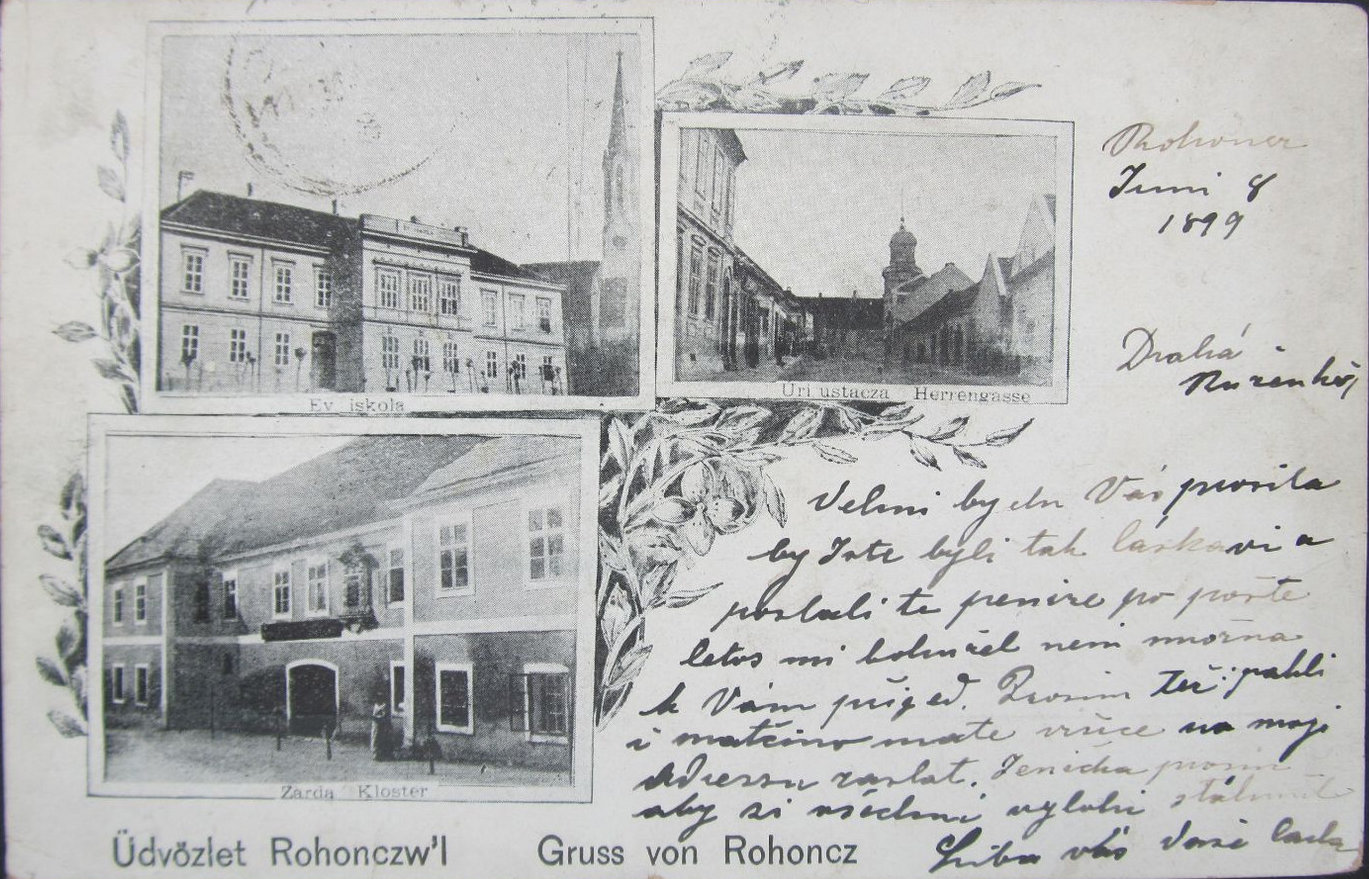 Ev. iskola
Uri ustacza Herrengasse
Zárda Kloster
Üdvözlet Rohonczw'l Gruss von Rohoncz
Rohoncz
Juni 8
1899
Drahá
Velmi bych Vás prosila
by Jste byli tak láskavi a
poslali te penize po poště
letos mi bohužel neni možna
k Vám přijeď. Prosim též: pakli
i matčino mate na moji
adressu zaslat. Jenička prosim
aby si všichni
Líba vás Vaše